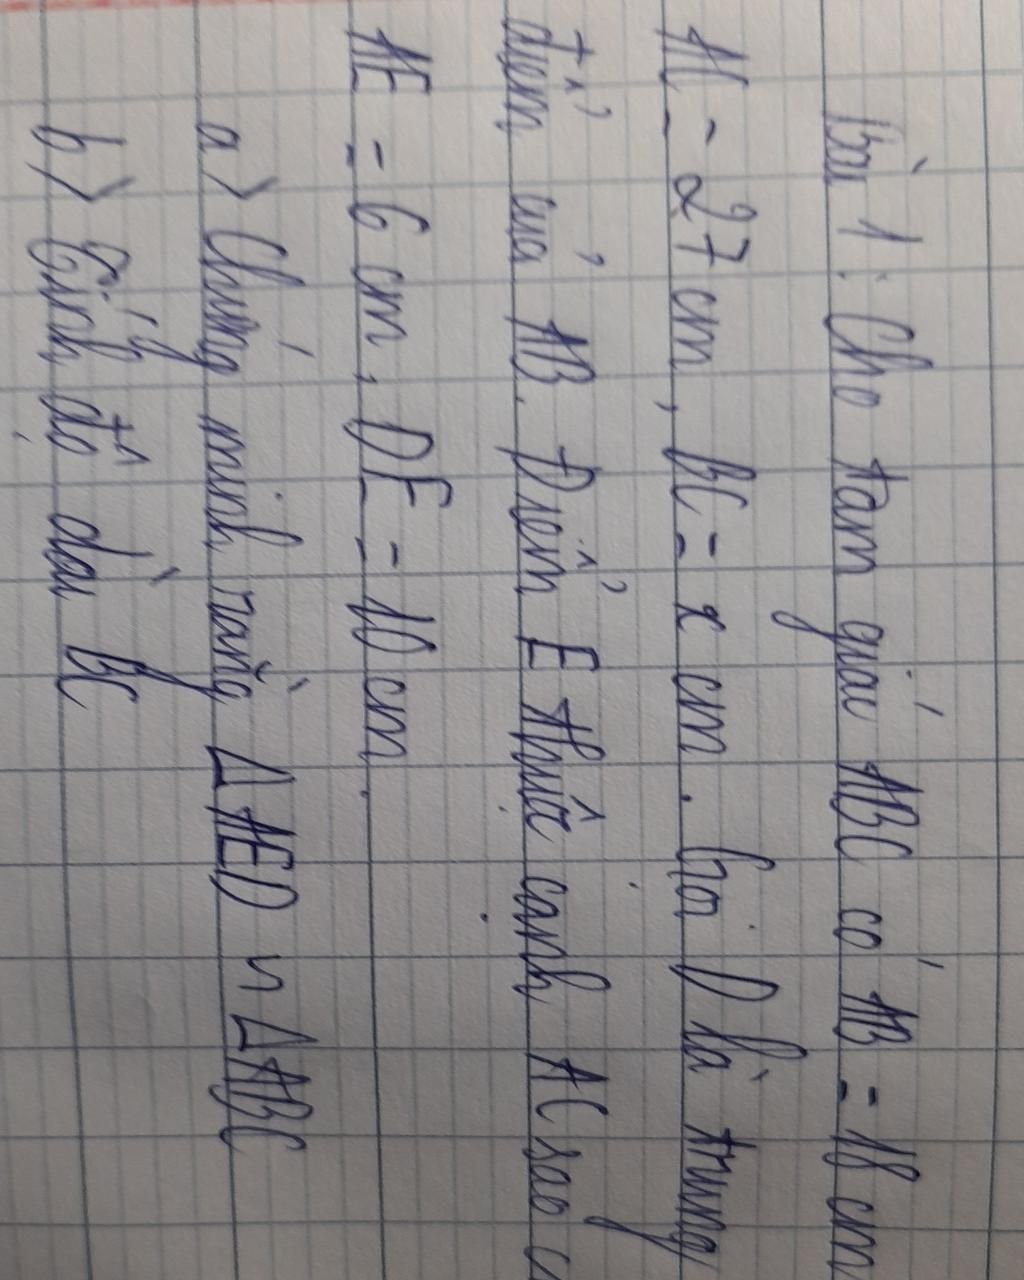 Bài 1: Cho tam giác ABC có AB = 18 cm
AC = 27 cm, BC = x cm. Gọi D là trung
điểm của AB. Điểm E thuộc cạnh AC sao
AE = 6 cm, DE = 10 cm.
a) Chứng minh rằng Δ AED ∽ Δ ABC
b) Tính độ dài BC